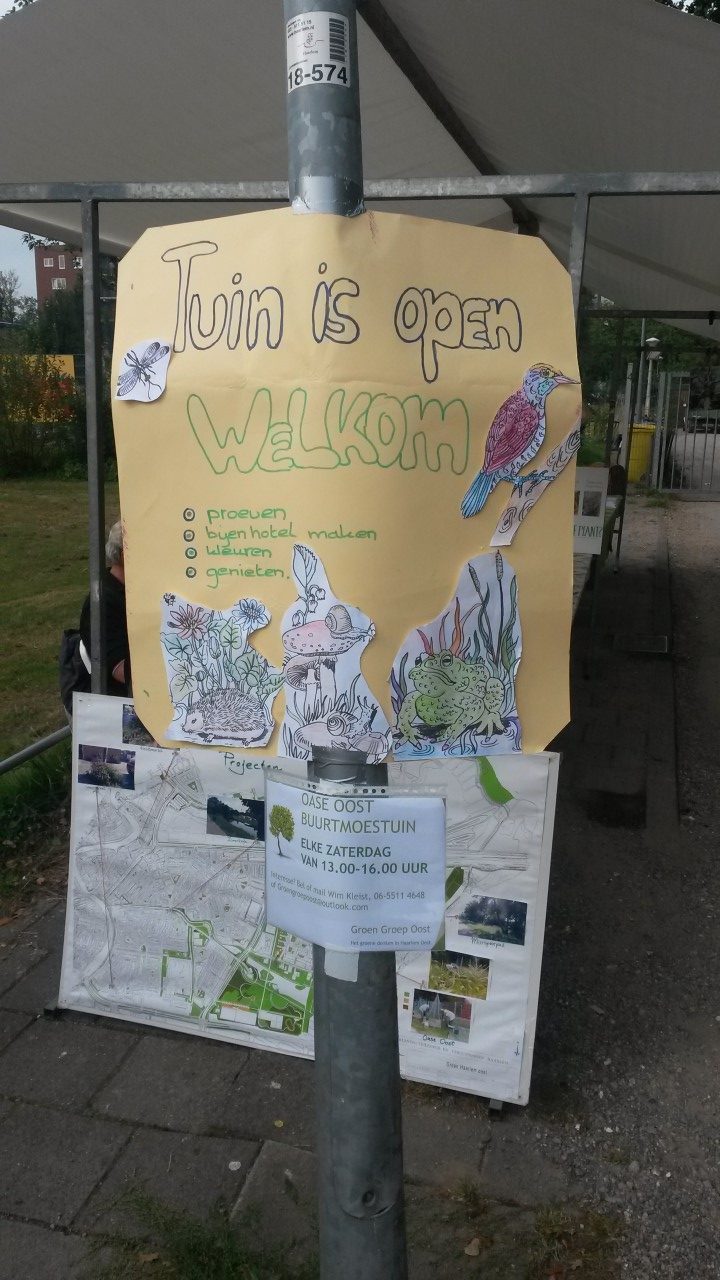 18-574
Tuin is open
WELKOM
proeven
bijenhotel maken
kleuren
genieten.
PLANT?
Projecten
OASE OOST
BUURTMOESTUIN
ELKE ZATERDAG
VAN 13.00-16.00 UUR
Interesse? Bel of mail Wim Kleist, 06-5511 4648
of Groengroepoost@outlook.com
Groen Groep Oost
Het groene denken in Haarlem Oost
Oase Oost